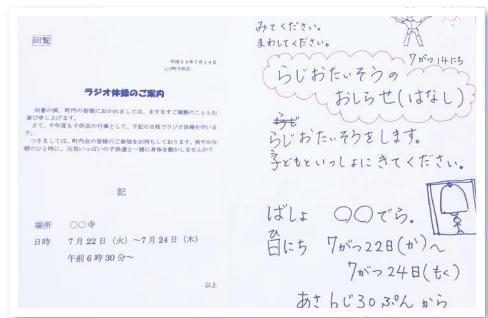 回覧
平成26年7月14日
町子供会
ラジオ体操のご案内
向暑の候、町内の皆様におかれましては、ますますご清勝のこととお
喜び申し上げます。
さて、今年度も子供会の行事として、下記の日程でラジオ体操を行いま
す。
つきましては、町内会の皆様のご参加をお待ちしております。爽やかな
朝のひと時に、元気いっぱいの子供達と一緒に身体を動かしませんか？
記
場所　〇〇寺
日時　7月22日（火）～7月24日（木）
午前6時30分～
以上
みてください。
まわしてください。
7がつ14にち
らじおたいそうの
おしらせ(はなし)
らじおたいそうをします。
子どもといっしょにきてください。
ばしょ　〇〇でら。
ひ
日にち　7がつ22日(か)～
7がつ24日(もく)
あさ6じ30ぷんから